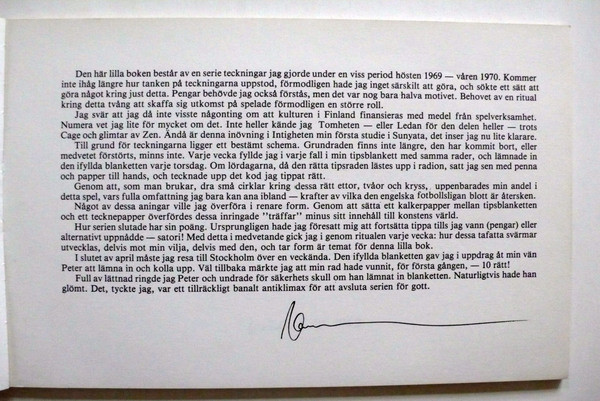 Den här lilla boken består av en serie teckningar jag gjorde under en viss period hösten 1969 — våren 1970. Kommer
inte ihåg längre hur tanken på teckningarna uppstod, förmodligen hade jag inget särskilt att göra, och sökte ett sätt att
göra något kring just detta. Pengar behövde jag också förstås, men det var nog bara halva motivet. Behovet av en ritual
kring detta tvång att skaffa sig utkomst på spelade förmodligen en större roll.
Jag svär att jag då inte visste någonting om att kulturen i Finland finansieras med medel från spelverksamhet.
Numera vet jag lite för mycket om det. Inte heller kände jag Tomheten — eller Ledan för den delen heller — trots
Cage och glimtar av Zen. Ändå är denna inövning i Intigheten min första studie i Sunyata, det inser jag nu lite klarare.
Till grund för teckningarna ligger ett bestämt schema. Grundraden finns inte längre, den har kommit bort, eller
medvetet förstörts, minns inte. Varje vecka fyllde jag i varje fall i min tipsblankett med samma rader, och lämnade in
den ifyllda blanketten varje torsdag. Om lördagarna, då den rätta tipsraden lästes upp i radion, satt jag sen med penna
och papper till hands, och tecknade upp det kod jag tippat rätt.
Genom att, som man brukar, dra små cirklar kring dessa rätt ettor, tvåor och kryss, uppenbarades min andel i
detta spel, vars fulla omfattning jag bara kan ana ibland — krafter av vilka den engelska fotbollsligan blott är återsken.
Något av dessa aningar ville jag överföra i renare form. Genom att sätta ett kalkerpapper mellan tipsblanketten
och ett tecknepapper överfördes dessa inringade ”träffar” minus sitt innehåll till konstens värld.
Hur serien slutade har sin poäng. Ursprungligen hade jag föresatt mig att fortsätta tippa tills jag vann (pengar) eller
alternativt uppnådde — satori! Med detta i medvetande gick jag i genom ritualen varje vecka: hur dessa tafatta svärmar
utvecklas, delvis mot min vilja, delvis med den, och tar form är temat för denna lilla bok.
I slutet av april måste jag resa till Stockholm över en veckända. Den ifyllda blanketten gav jag i uppdrag åt min vän
Peter att lämna in och kolla upp. Väl tillbaka märkte jag att min rad hade vunnit, för första gången, — 10 rätt!
Full av lättnad ringde jag Peter och undrade för säkerhets skull om han lämnat in blanketten. Naturligtvis hade han
glömt. Det, tyckte jag, var ett tillräckligt banalt antiklimax för att avsluta serien för gott.